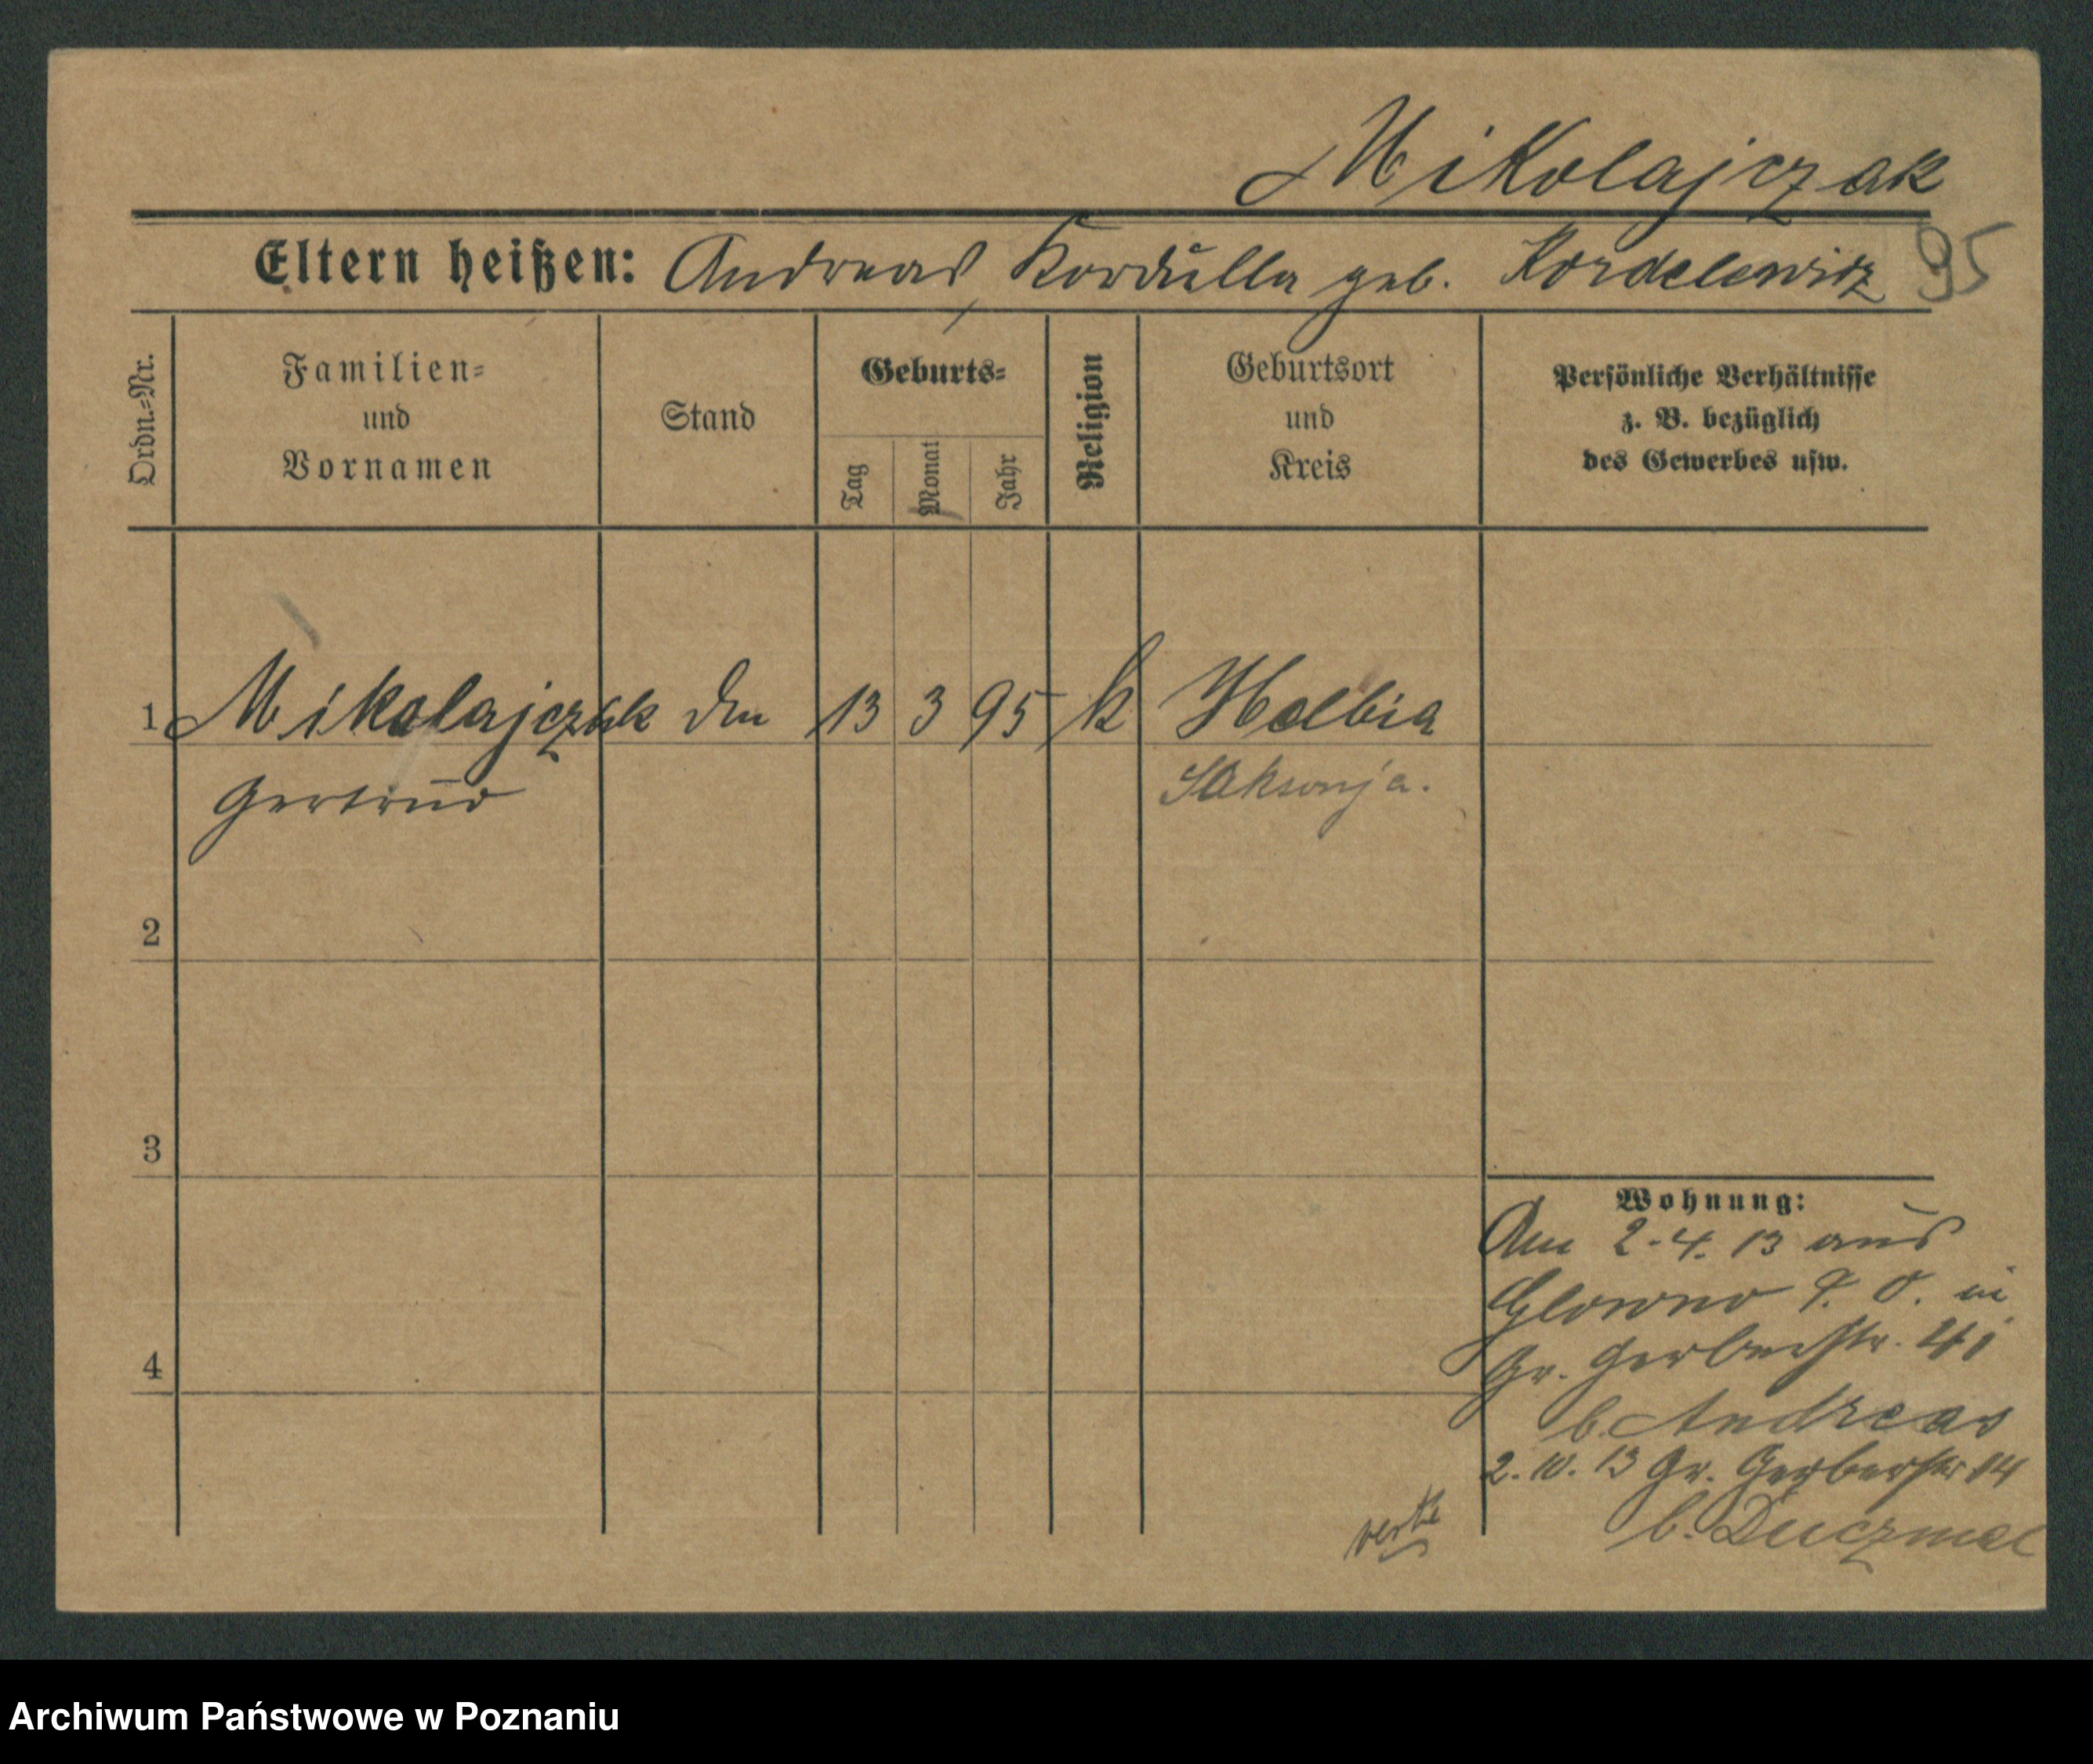 Mikolajczak
Eltern heißen: Andreas, Kordulla geb. Kordelewicz 95
Ordn.-Nr.
Familien-
und
Vornamen
Stand
Geburts-
Tag
Monat
Jahr
Religion
Geburtsort
und
Kreis
Persönliche Verhältnisse
z. B. bezüglich
des Gewerbes usw.
1 Mikolajczak 13 3 95 k Helbia
Gertrud Saksonja.
2
3
4
Wohnung:
Am 2.4.13 aus
Glowno P. O. in
Gr. Gerberstr. 41
b. Andreas
2.10.13 Gr. Gerberstr 14
b. Duczmal
verte
Archiwum Państwowe w Poznaniu